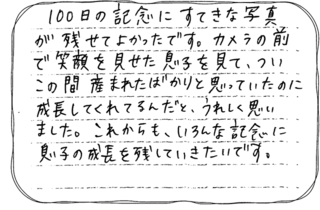 100日の記念にすてきな写真
が残せてよかったです。カメラの前
で笑顔を見せた息子を見て、つい
この間産まれたばかりと思っていたのに
成長してくれてるんだと、うれしく思い
ました。これからも、いろんな記念に
息子の成長を残していきたいです。